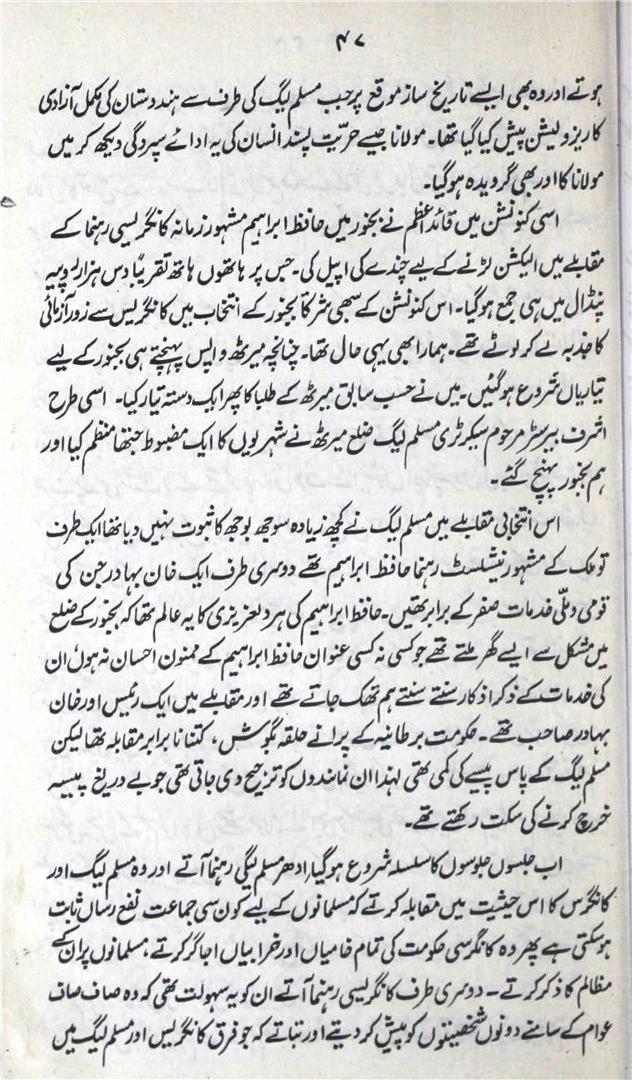 ۴۷
ہوتے اور وہ بھی ایسے تاریخ ساز موقع پر جب مسلم لیگ کی طرف سے ہندوستان کی مکمل آزادی
کا ریزولیشن پیش کیا گیا تھا۔ مولانا جیسے حریّت پسند انسان کی یہ ادائے سپردگی دیکھ کر میں
مولانا کا اور بھی گرویدہ ہوگیا۔
اسی کنونشن میں قائد اعظم نے بجنور میں حافظ ابراہیم مشہور زمانہ کانگریسی رہنما کے
مقابلے میں الیکشن لڑنے کے لیے چندے کی اپیل کی۔ جس پر ہاتھوں ہاتھ تقریباً دس ہزار روپیہ
پنڈال میں ہی جمع ہوگیا۔ اس کنونشن کے سبھی شرکا بجنور کے انتخاب میں کانگریس سے زور آزمائی
کا جذبہ لے کر لوٹے تھے۔ ہمارا بھی یہی حال تھا۔ چنانچہ میرٹھ واپس پہنچتے ہی بجنور کے لیے
تیاریاں شروع ہوگئیں۔ میں نے حسب سابق میرٹھ کے طلبا کا پھر ایک دستہ تیار کیا۔ اسی طرح
اشرف بیرسٹر مرحوم سیکرٹری مسلم لیگ ضلع میرٹھ نے شہریوں کا ایک مضبوط جتھا منظم کیا اور
ہم بجنور پہنچ گئے۔
اس انتخابی مقابلے میں مسلم لیگ نے کچھ زیادہ سوجھ بوجھ کا ثبوت نہیں دیا تھا ایک طرف
تو ملک کے مشہور نیشنلسٹ رہنما حافظ ابراہیم تھے دوسری طرف ایک خان بہادر جن کی
قومی و ملّی خدمات صفر کے برابر تھیں۔ حافظ ابراہیم کی ہر دلعزیزی کا یہ عالم تھا کہ بجنور کے ضلع
میں مشکل سے ایسے گھر ملتے تھے جو کسی نہ کسی عنوان حافظ ابراہیم کے ممنون احسان نہ ہوں ان
کی خدمات کے ذکر اذکار سنتے سنتے ہم تھک جاتے تھے اور مقابلے میں ایک رئیس اور خان
بہادر صاحب تھے۔ حکومت برطانیہ کے پرانے حلقہ بگوش، کتنا نا برابر مقابلہ تھا لیکن
مسلم لیگ کے پاس پیسے کی کمی تھی لہٰذا ان نمائندوں کو ترجیح دی جاتی تھی جو بے دریغ پیسہ
خرچ کرنے کی سکت رکھتے تھے۔
اب جلسوں جلوسوں کا سلسلہ شروع ہوگیا ادھر مسلم لیگی رہنما آتے اور وہ مسلم لیگ اور
کانگرس کا اس حیثیت میں مقابلہ کرتے کہ مسلمانوں کے لیے کون سی جماعت نفع رساں ثابت
ہوسکتی ہے پھر وہ کانگرسی حکومت کی تمام خامیاں اور خرابیاں اجاگر کرتے، مسلمانوں پر ان کے
مظالم کا ذکر کرتے۔ دوسری طرف کانگریسی رہنما آتے ان کو یہ سہولت تھی کہ وہ صاف صاف
عوام کے سامنے دونوں شخصیتوں کو پیش کر دیتے اور بتاتے کہ جو فرق کانگریس اور مسلم لیگ میں